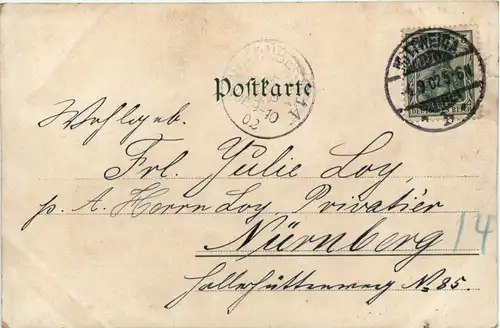 Postkarte
9-10
02
Wohlgeb.
Frl. Julie Loy,
p. A. Herrn Loy, Privatier
Nürnberg
14
Hallerhüttenweg No 85.